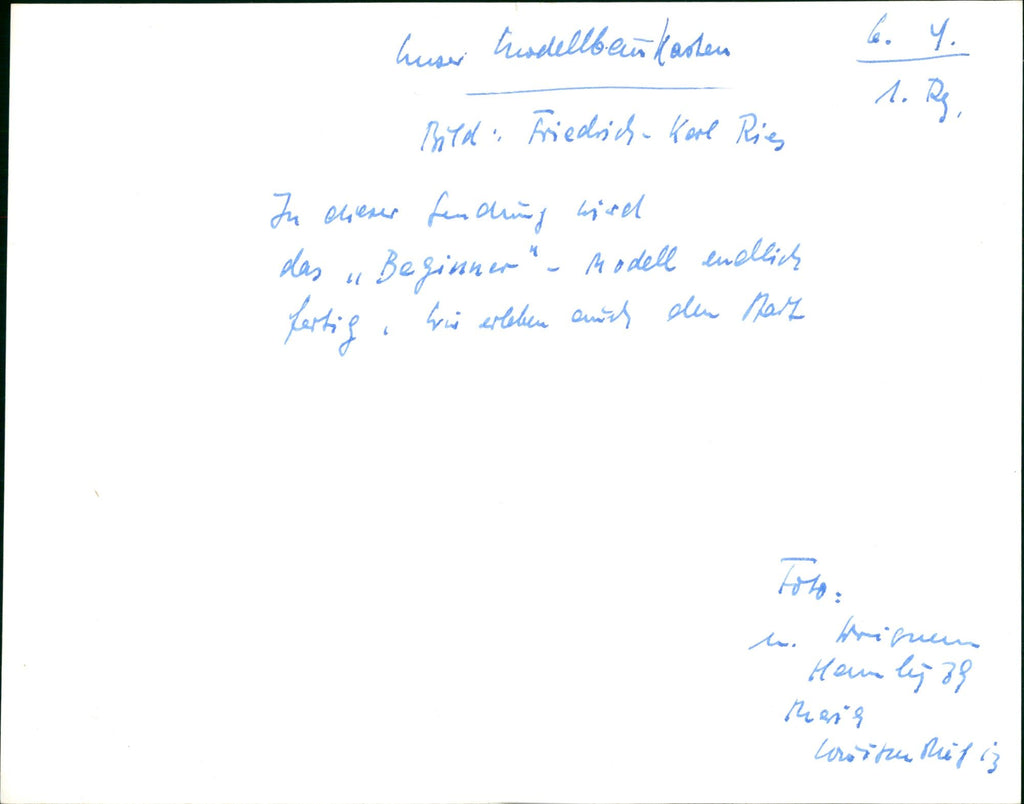 Unser Modellbaukasten
6. 4.
1. Rg.
Bild: Friedrich-Karl Ries
In dieser Sendung wird
das „Beginner"-Modell endlich
fertig. Wir erleben auch den Start
Foto:
Hamburg 39
Maria